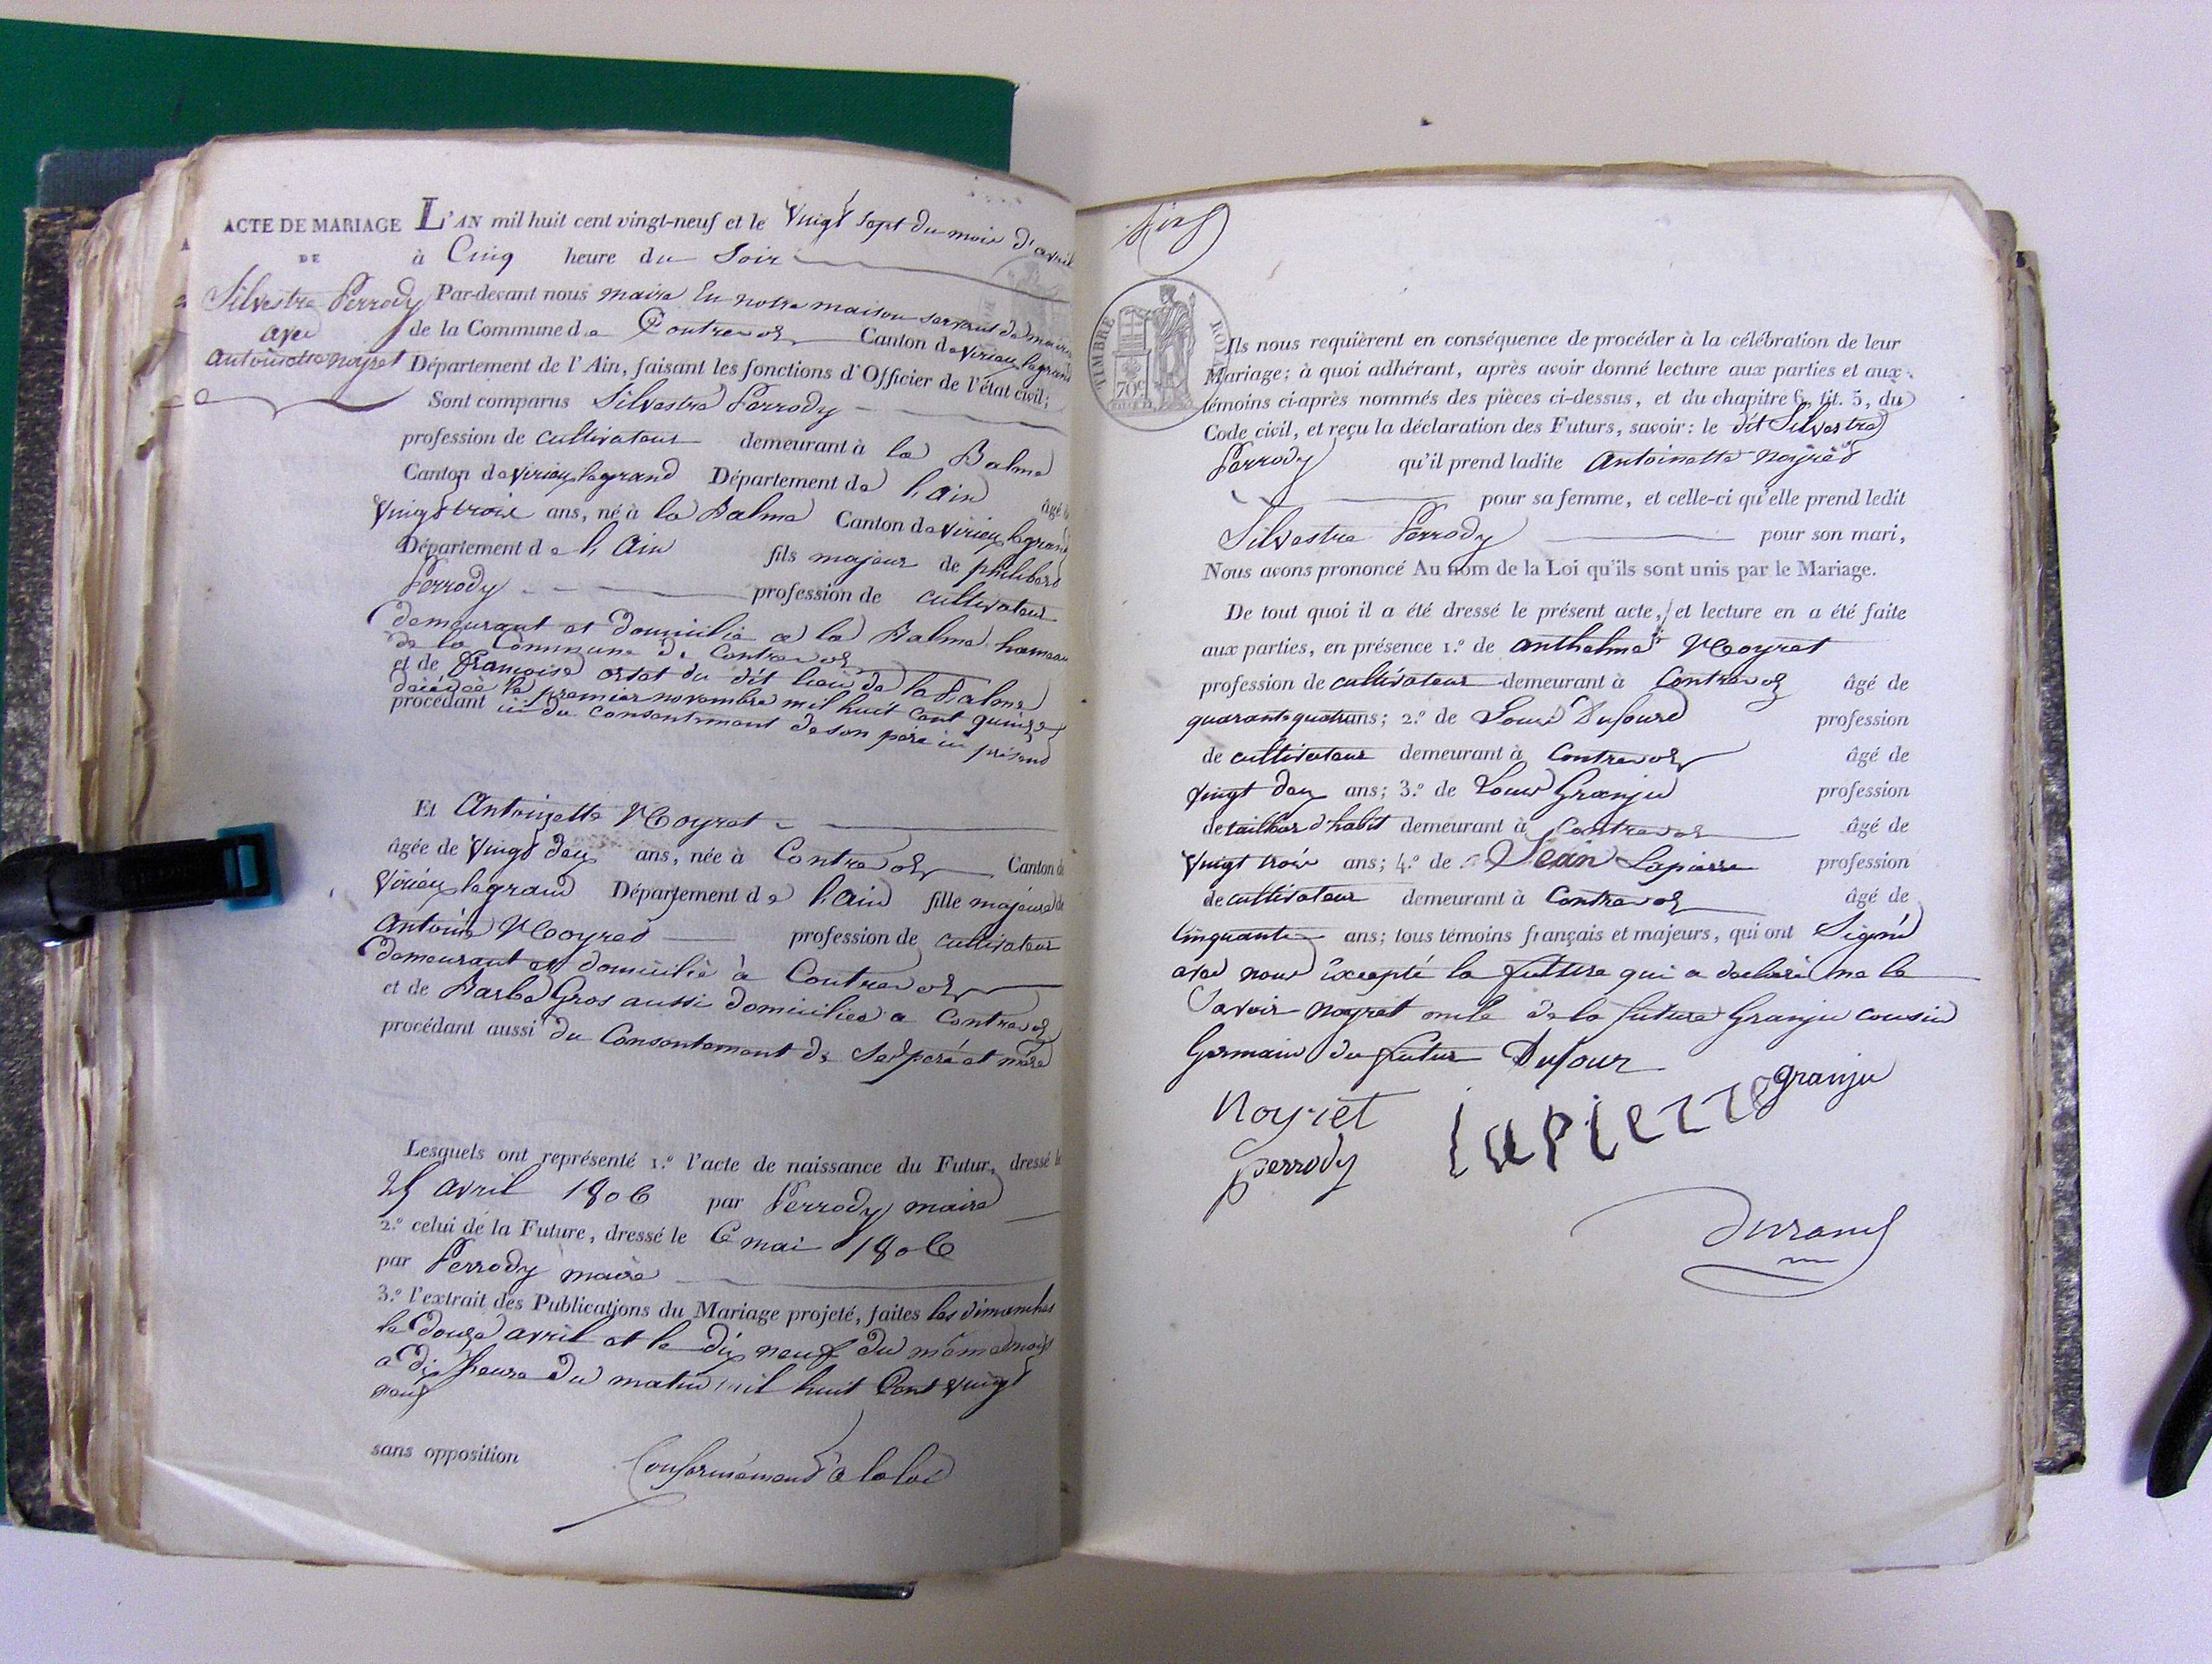 ACTE DE MARIAGE
DE
Silvestre Perrody
avec
antoinette noyret
L'AN mil huit cent vingt-neuf et le vingt sept du mois d'avril
à Cinq heure du Soir
Par-devant nous maire En notre maison servant de mairie
de la Commune de Contrevoz Canton de virieu legrand
Département de l'Ain, faisant les fonctions d'Officier de l'état civil;
Sont comparus Silvestre Perrody
profession de cultivateur demeurant à la Balme
Canton de virieu legrand Département de l'ain âgé de
vingt trois ans, né à la Balme Canton de virieu legrand
Département de l'Ain fils majeur de philibert
Perrody profession de cultivateur
demeurant et domicilié a la Balme hameau
de la Commune de Contrevoz
et de françoise ortet du dit lieu de la Balme
décédée le premier novembre mil huit cent quinze
procédant ici du consentement de son père ici présent
Et Antoinette Noyret
âgée de vingt deux ans, née à Contrevoz Canton de
virieu legrand Département de l'Ain fille majeure de
Antoine Noyret profession de cultivateur
demeurant et domicilié à Contrevoz
et de Barbe Gros aussi domiciliée a Contrevoz
procédant aussi du Consentement de Ses pere et mère
Lesquels ont représenté 1.º l'acte de naissance du Futur, dressé le
25 avril 1806 par Perrody maire
2.º celui de la Future, dressé le 6 mai 1806
par Perrody maire
3.º l'extrait des Publications du Mariage projeté, faites les dimanches
le douze avril et le dix neuf du même mois
a dix heure du matin mil huit Cent vingt
neuf
sans opposition Conformément a la loi
TIMBRE ROYAL
70c
Ils nous requièrent en conséquence de procéder à la célébration de leur
Mariage; à quoi adhérant, après avoir donné lecture aux parties et aux
témoins ci-après nommés des pièces ci-dessus, et du chapitre 6, tit. 5, du
Code civil, et reçu la déclaration des Futurs, savoir: le dit Silvestre
Perrody qu'il prend ladite Antoinette noyret
pour sa femme, et celle-ci qu'elle prend ledit
Silvestre Perrody pour son mari,
Nous avons prononcé Au nom de la Loi qu'ils sont unis par le Mariage.
De tout quoi il a été dressé le présent acte, et lecture en a été faite
aux parties, en présence 1.º de anthelme Noyret
profession de cultivateur demeurant à Contrevoz âgé de
quarante quatre ans; 2.º de Louis Dufour profession
de cultivateur demeurant à Contrevoz âgé de
vingt deux ans; 3.º de Louis Granju profession
de tailleur d'habit demeurant à Contrevoz âgé de
vingt trois ans; 4.º de Jean Lapierre profession
de cultivateur demeurant à Contrevoz âgé de
Cinquante ans; tous témoins français et majeurs, qui ont Signé
avec nous excepté la future qui a declaré ne le
Savoir noyret oncle de la future Granju cousin
Germain du futur Dufour
granju
Noyret lapierre
perrody
Durand